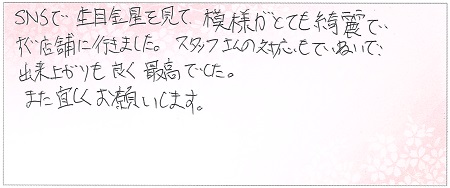 SNSで生目金屋を見て、模様がとても綺麗で
が店舗に行きました。スタッフさんの対応もていねいで
出来上がりも良く最高でした。
また宜しくお願いします。